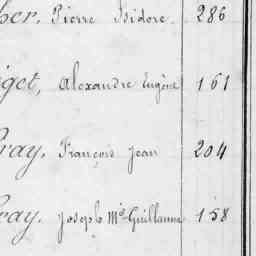 her, Pierre Isidore. 286
get, Alexandre Eugène 161
ray, François Jean 204
ray, Joseph Mie Guillaume 158